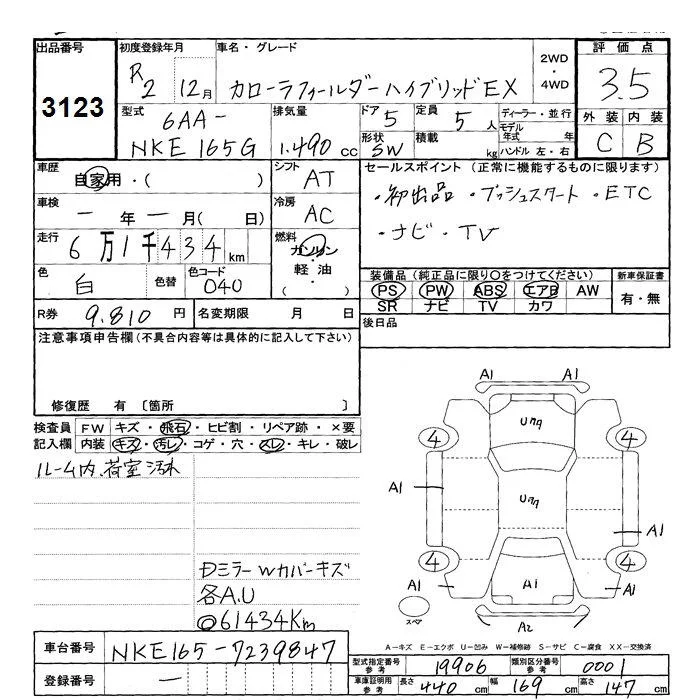 出品番号
3123
初度登録年月
R2 12月
車名・グレード
カローラフィールダーハイブリッドEX
2WD
・
4WD
評価点
3.5
外装 内装
C B
型式
6AA-
NKE165G
排気量
1.490 cc
ドア 5
定員 5 人
形状 SW
積載 kg
ディーラー・並行
モデル年式 年
ハンドル 左・右
車歴
自家用・( )
シフト
AT
車検
一年一月( 日)
冷房
AC
走行
6万1千434km
燃料
ガソリン
・
軽油
・
( )
色
白
色替
色コード
040
R券 9.810 円
名変期限 月 日
セールスポイント(正常に機能するものに限ります)
・初出品・プッシュスタート・ETC
・ナビ・TV
装備品(純正品に限り〇をつけてください)
PS PW ABS エアB AW
SR ナビ TV カワ
新車保証書
有・無
後日品
注意事項申告欄(不具合内容等は具体的に記入して下さい)
修復歴 有 〔箇所 〕
検査員記入欄
FW キズ・飛石・ヒビ割・リペア跡・×要
内装 キズ・汚レ・コゲ・穴・スレ・キレ・破レ
ルーム内、荷室汚れ
Dミラーwカバーキズ
各A.U
◎61434Km
車台番号 NKE165-7239847
登録番号 一
A1 A1
Uแฤ
4 4
A1
A1
4 4
A1 A1 A1
スペア
A2
A-キズ E-エクボ U-凹み W-補修跡 S-サビ C-腐食 XX-交換済
型式指定番号 参考 19906
類別区分番号 参考 0001
車庫証明用 参考 長さ 440 cm 幅 169 cm 高さ 147 cm